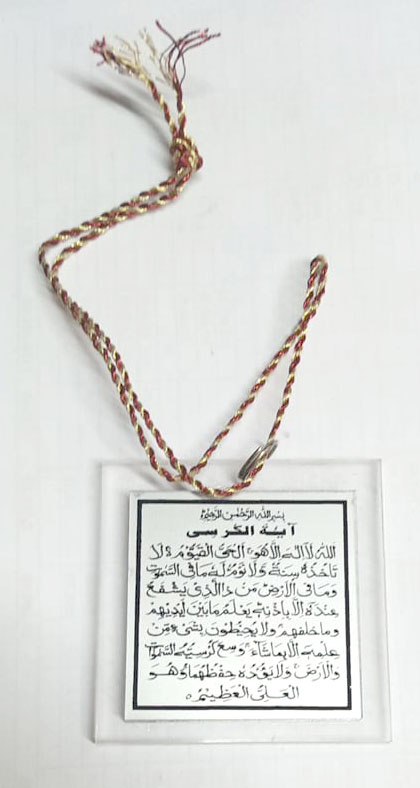 بسم الله الرحمن الرحيم
آية الكرسى
الله لا اله الا هو الحى القيوم لا
تاخذه سنة ولا نوم له ما فى السموت
وما فى الارض من ذا الذى يشفع
عنده الا باذنه يعلم ما بين ايديهم
وما خلفهم ولا يحيطون بشىء من
علمه الا بما شاء وسع كرسيه السموت
والارض ولا يؤده حفظهما وهو
العلى العظيم